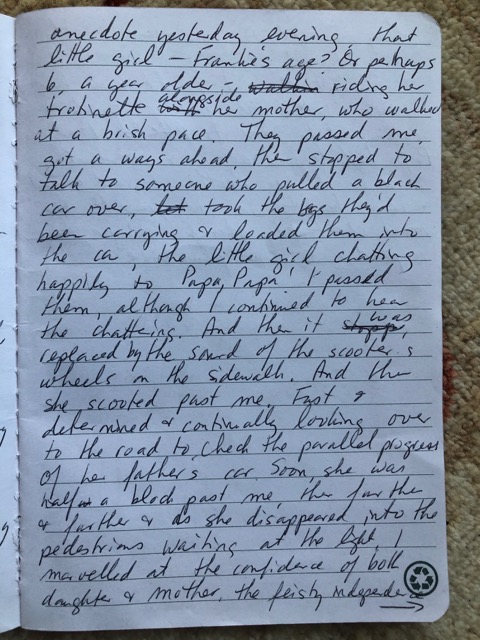 anecdote yesterday evening, that
little girl – Frankie's age? Or perhaps
6, a year older –, walkin riding her
trotinette with alongside her mother, who walked
at a brisk pace. They passed me,
got a ways ahead, then stopped to
talk to someone who pulled a black
car over, let took the bags they'd
been carrying & loaded them into
the car, the little girl chatting
happily to Papa, Papa! I passed
them, although I continued to hear
the chattering. And then it stopps, was
replaced by the sound of the scooter's
wheels on the sidewalk. And then
she scooted past me. Fast &
determined & continually looking over
to the road to check the parallel progress
of her father's car. Soon she was
half a block past me then further
& further & as she disappeared into the
pedestrians waiting at the light, I
marvelled at the confidence of both
daughter & mother, the feisty independence